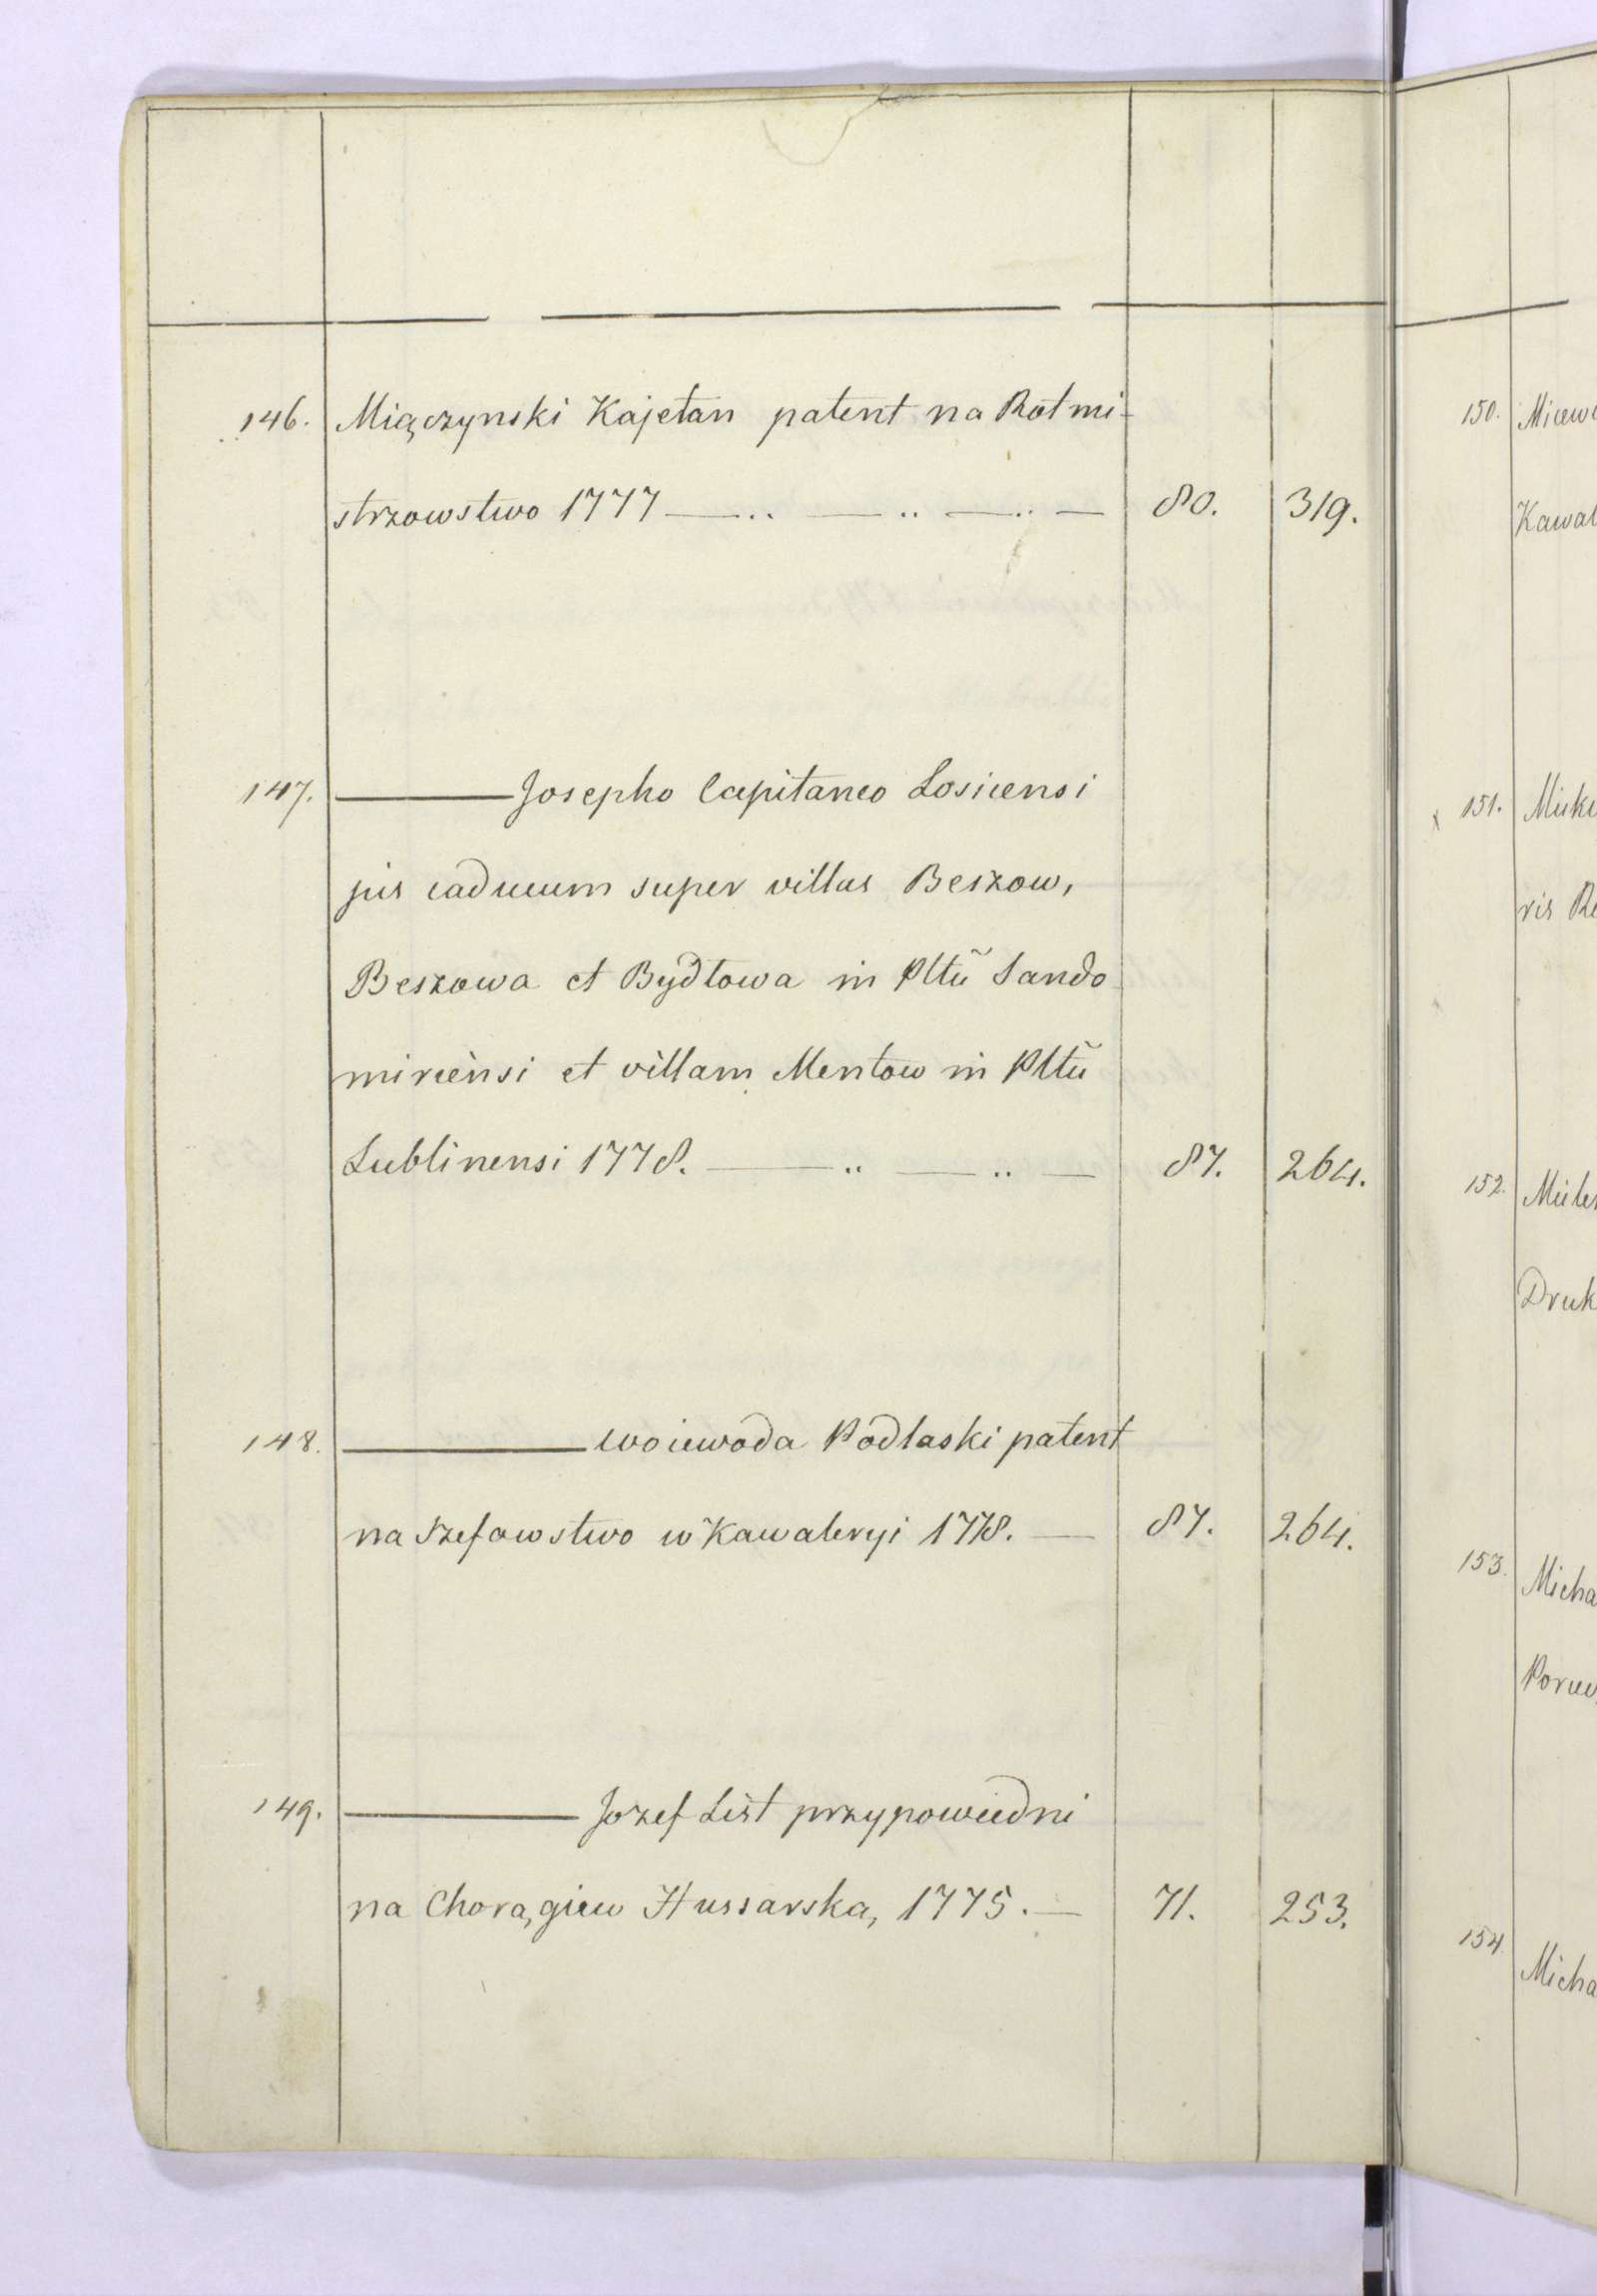 146. Miączynski Kajetan patent na Rotmi-
strzowstwo 1777 — .. — .. — .. — 80. 319.
147. ——— Josepho Capitaneo Losicensi
jus caducum super villas Beszow,
Beszowa et Bydłowa in Pltũ Sando
miriensi et villam Mentow in Pltũ
Lublinensi 1778. — .. — .. — 87. 264.
148. ——— Woiewoda Podlaski patent
na Szefowstwo w Kawaleryi 1778. — 87. 264.
149. ——— Jozef List przypowiedni
na Chorągiew Hussarską 1775. — 71. 253.
150.
Kawal
151.
ris Re
152.
Druk
153. Micha
154. Micha